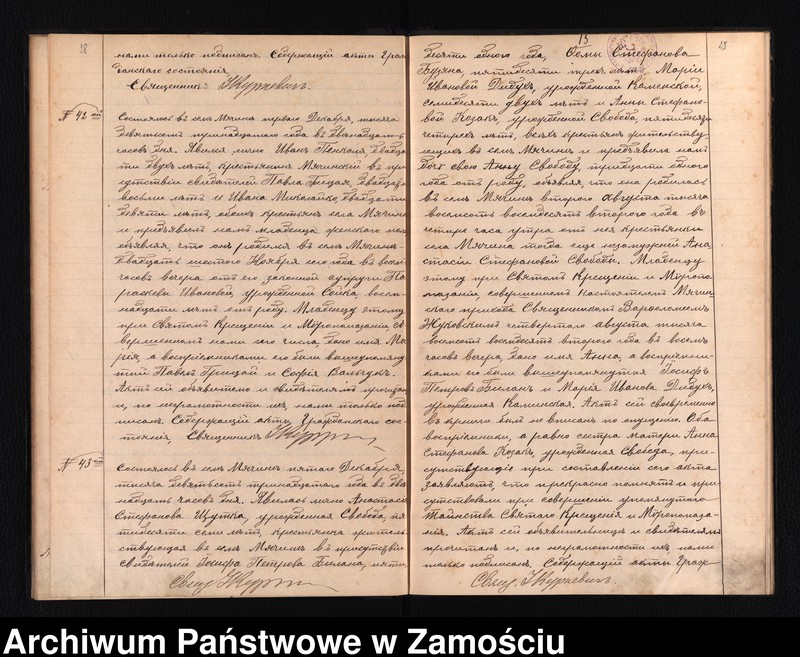 28
нами только подписанъ. Содержащій акты Граж
данскаго состоянія
Священникъ
№ 42
Состоялось въ селѣ Мячинѣ перваго Декабря, тысяча
девятьсотъ тринадцатаго года въ двѣнадцать
часовъ дня. Явился лично Иванъ двадца
ти двухъ лѣтъ, крестьянинъ Мячинскій въ при
сутствіи свидѣтелей Павла Грицая, двадцати
восьми лѣтъ и Ивана Миколайко двадцати
девяти лѣтъ, обоихъ крестьянъ села Мячина
и предъявилъ намъ младенца женскаго пола
объявляя, что онъ родился въ селѣ Мячинѣ
двадцать шестого Ноября сего года въ восемь
часовъ вечера отъ его законной супруги Па
раскевы Ивановой, урожденной восем
надцати лѣтъ отъ роду. Младенцу этому
при Святомъ Крещеніи и Мѵропомазаніи, со
вершенномъ нами сего числа, дано имя Ма
рія, а воспріемниками его были вышеупомяну
тый Павелъ Грицай и Софія
Актъ сей объявителю и свидѣтелямъ прочитанъ
и, по неграмотности ихъ, нами только под
писанъ. Содержащій акты Гражданскаго сос
тоянія, Священникъ
№ 43
Состоялось въ селѣ Мячинѣ пятаго Декабря
тысяча девятьсотъ тринадцатаго года въ двѣ
надцать часовъ дня. Явилась лично Анастасія
Стефанова Щутка, урожденная Свобода, пя
тидесяти семи лѣтъ, крестьянка житель
ствующая въ селѣ Мячинѣ въ присутствіи
свидѣтелей Іосифа Петрова Билана, пяти
Свящ.
29
десяти одного года, Стефанова
пятидесяти трехъ лѣтъ, Маріи
Ивановой Дидухъ, урожденной Каменской,
семидесяти двухъ лѣтъ и Анны Стефано
вой Козакъ, урожденной Свобода, пятидесяти
четырехъ лѣтъ, всѣхъ крестьянъ жительству
ющихъ въ селѣ Мячинѣ и предъявила намъ
дочь свою Анну Свободу, тридцати одного
года отъ роду, объявляя, что она родилась
въ селѣ Мячинѣ второго августа тысяча
восемьсотъ восемьдесятъ второго года въ
четыре часа утра отъ нея крестьянки
села Мячина тогда еще незамужней Ана
стасіи Стефановой Свободы. Младенцу
этому при Святомъ Крещеніи и Мѵропо
мазаніи, совершенномъ Настоятелемъ Мячин
скаго прихода Священникомъ Варѳоломеемъ
Жуковскимъ четвертаго августа тысяча
восемьсотъ восемьдесятъ второго года въ восемь
часовъ вечера, дано имя Анна, а воспріемни
ками его были вышеупомянутые Іосифъ
Петровъ Биланъ и Марія Иванова Дидухъ,
урожденная Каминская. Актъ сей своевременно
въ книги былъ не вписанъ по упущенію. Оба
воспріемники, а равно сестра матери Анна
Стефанова Козакъ, урожденная Свобода, при
сутствующіе при составленіи сего акта
заявляютъ, что прекрасно помнятъ и при
сутствовали при совершеніи упомянутаго
Таинства Святаго Крещенія и Мѵропомаза
нія. Актъ сей объявительницѣ и свидѣтелямъ
прочитанъ и, по неграмотности ихъ нами
только подписанъ. Содержащій акты Граж
Свящ.
Archiwum Państwowe w Zamościu